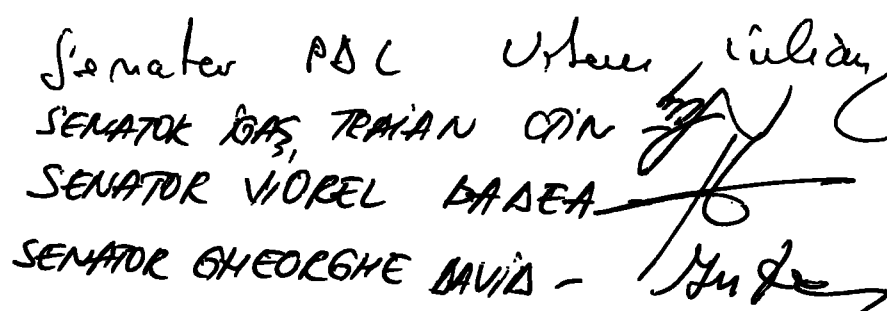 Senator PDL Urban Iulian
SENATOR IGAȘ TRAIAN CĂIN
SENATOR VIOREL BADEA
SENATOR GHEORGHE DAVID -